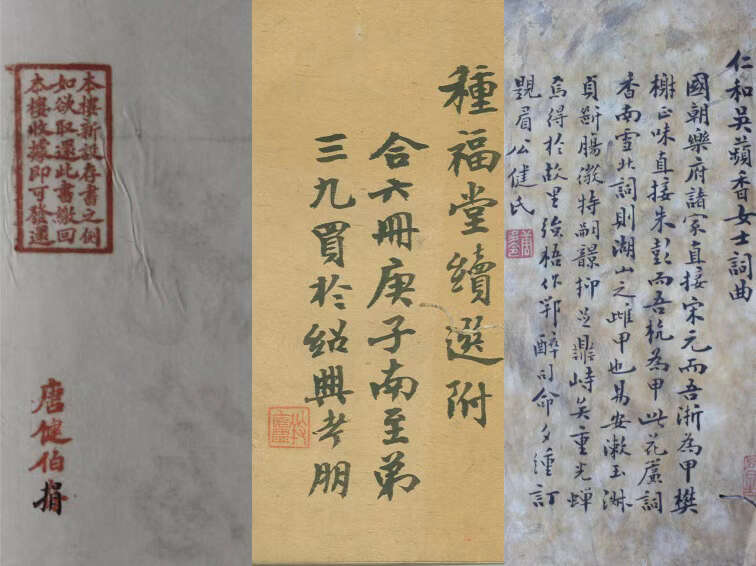 本樓新設存書之例
如欲取還此書繳回
本樓收據即可發還
唐健伯捐
種福堂續選附
合六冊庚子南至弟
三九買於紹興考朋
仁和吳蘋香女士詞曲
國朝樂府諸家直接宋元而吾浙為甲樊
榭正味直接朱彭而吾杭為甲此花廬詞
香南雪北詞則湖山之雌甲也易安漱玉淋
貞斷腸微特嗣響抑且鼎峙矣重光蟬
焉得於故里強梧作鄂醉司命夕重訂
眉公健氏